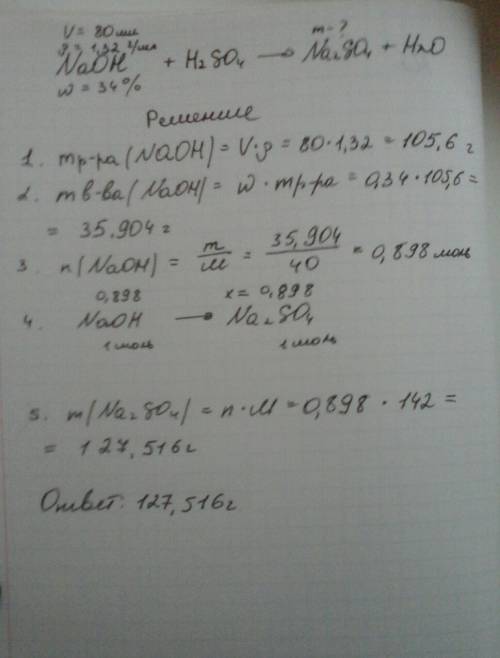 V = 80 мл
m - ?
ρ = 1,32 г/мл
NaOH + H₂SO₄ → Na₂SO₄ + H₂O
w = 34%
Решение
1. mр-ра (NaOH) = V·ρ = 80·1,32 = 105,6 г
2. mв-ва (NaOH) = w · mр-ра = 0,34·105,6 =
= 35,904 г
3. n(NaOH) = m/M = 35,904/40 = 0,898 моль
0,898 x = 0,898
4. NaOH → Na₂SO₄
1 моль 1 моль
5. m(Na₂SO₄) = n·M = 0,898 · 142 =
= 127,516 г
Ответ: 127,516 г